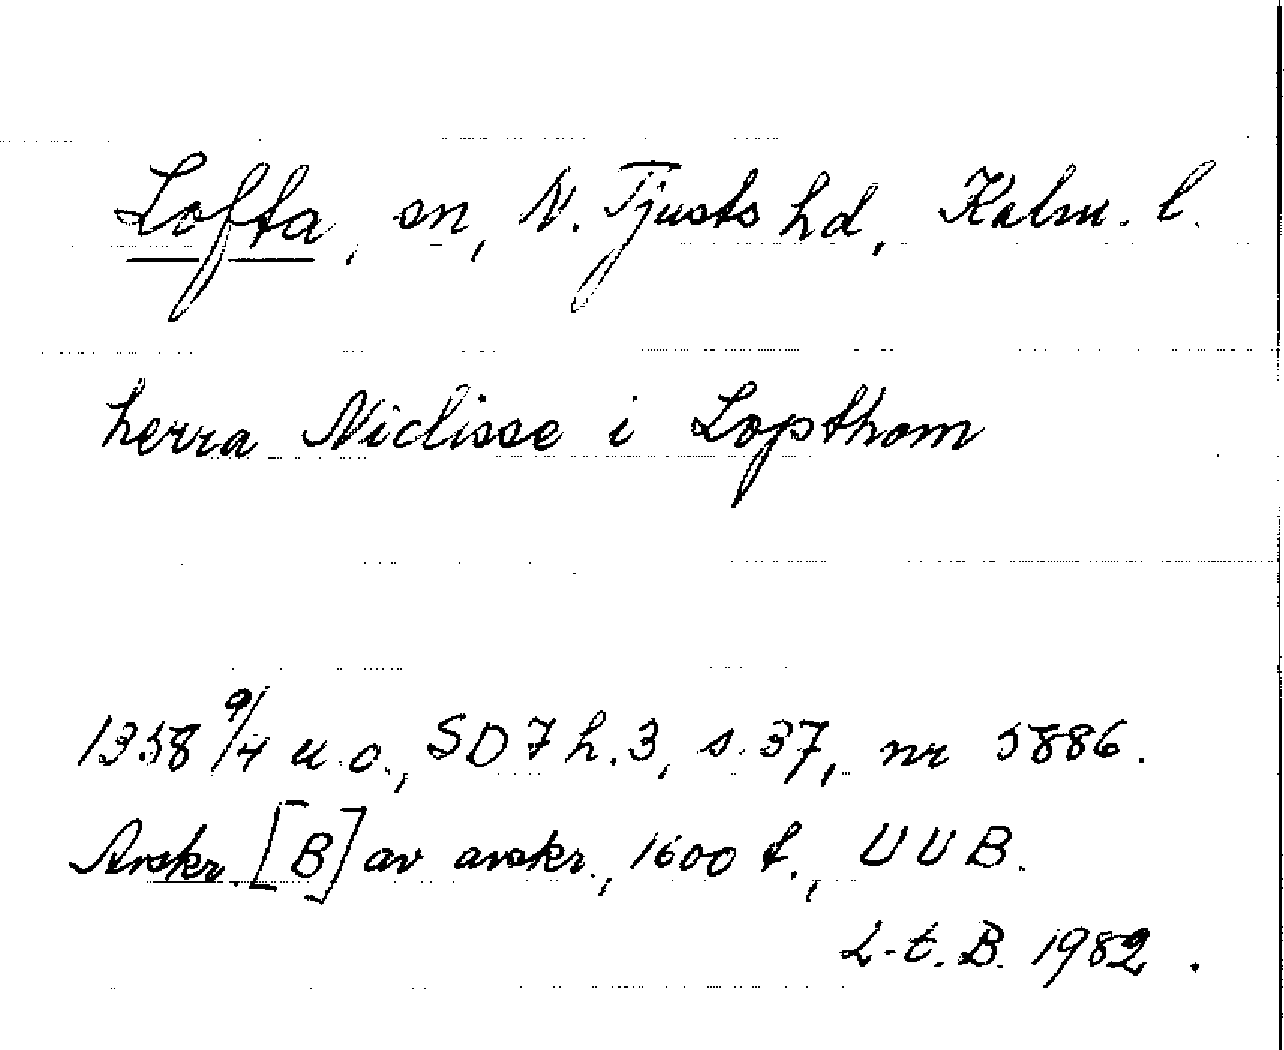 Lofta, sn, N. Tjusts hd, Kalm. l.
herra Niclisse i Lopthom
1358 9/4 u.o., SD 7 h. 3, s. 37, nr 5886.
Avskr. [B] av avskr., 1600 t., UUB.
L-t. B. 1982.